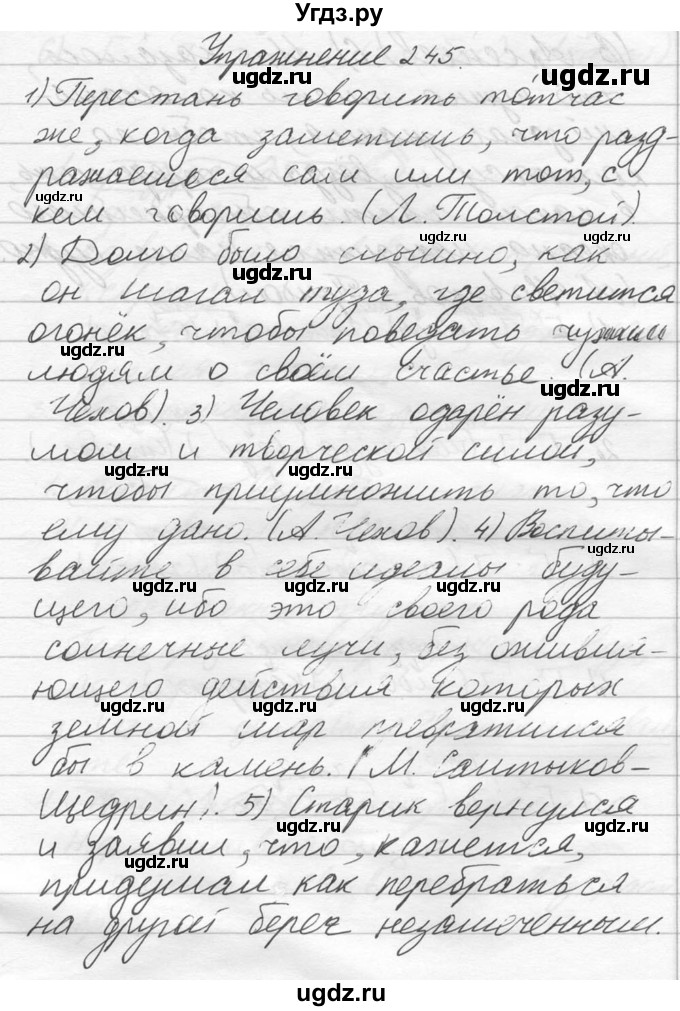 Угдз.ру
Упражнение 245.
1) Перестань говорить тотчас
же, когда заметишь, что разд-
ражаешься сам или тот, с
кем говоришь. (Л. Толстой).
2) Долго было слышно, как
он шагал туда, где светится
огонёк, чтобы поведать чужим
людям о своём счастье. (А.
Чехов). 3) Человек одарён разу-
мом и творческой силой,
чтобы приумножить то, что
ему дано. (А. Чехов). 4) Воспиты-
вайте в себе идеалы буду-
щего, ибо это своего рода
солнечные лучи, без оживля-
ющего действия которых
земной шар превратился
бы в камень. (М. Салтыков-
Щедрин). 5) Старик вернулся
и заявил, что, кажется,
придумал как перебраться
на другой берег незамеченным.
ugdz.ru